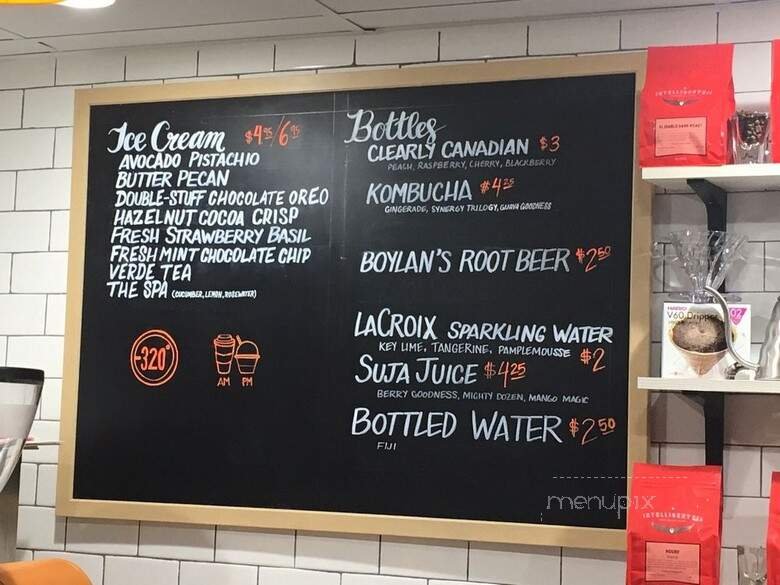 Ice Cream $4.95/6.95
AVOCADO PISTACHIO
BUTTER PECAN
DOUBLE-STUFF CHOCOLATE OREO
HAZELNUT COCOA CRISP
FRESH STRAWBERRY BASIL
FRESH MINT CHOCOLATE CHIP
VERDE TEA
THE SPA (CUCUMBER, LEMON, ROSEWATER)
-320°
AM PM
Bottles
CLEARLY CANADIAN $3
PEACH, RASPBERRY, CHERRY, BLACKBERRY
KOMBUCHA $4.25
GINGERADE, SYNERGY TRILOGY, GUAVA GOODNESS
BOYLAN'S ROOT BEER $2.50
LACROIX SPARKLING WATER
KEY LIME, TANGERINE, PAMPLEMOUSSE $2
SUJA JUICE $4.25
BERRY GOODNESS, MIGHTY DOZEN, MANGO MAGIC
BOTTLED WATER $2.50
FIJI
INTELLIGENTSIA
EL DIABLO DARK ROAST
HARIO
V60 Dripper
02
INTELLIGENTSIA
HOUSE
menupix